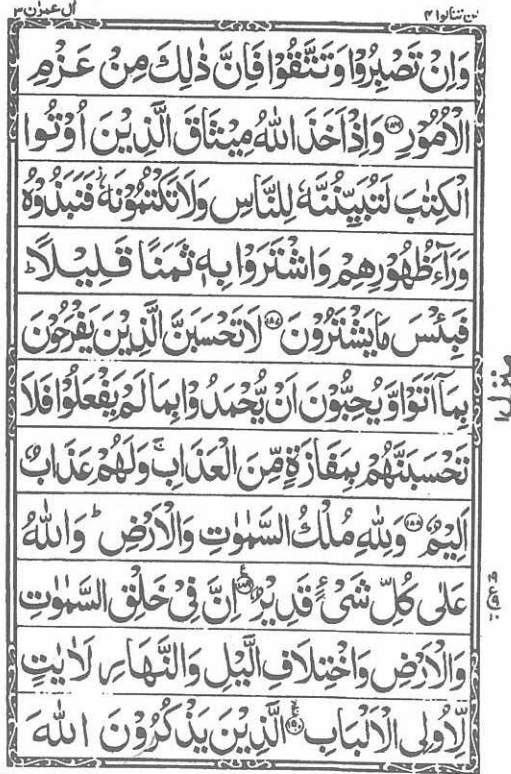 لن تنالوا ٤
اٰل عمرٰن ٣
وَاِنْ تَصْبِرُوْا وَتَتَّقُوْا فَاِنَّ ذٰلِكَ مِنْ عَزْمِ
الْاُمُوْرِ ﴿۱۸۶﴾ وَاِذْ اَخَذَ اللّٰهُ مِيْثَاقَ الَّذِيْنَ اُوْتُوا
الْكِتٰبَ لَتُبَيِّنُنَّهٗ لِلنَّاسِ وَلَا تَكْتُمُوْنَهٗ فَنَبَذُوْهُ
وَرَآءَ ظُهُوْرِهِمْ وَاشْتَرَوْا بِهٖ ثَمَنًا قَلِيْلًا ؕ
فَبِئْسَ مَا يَشْتَرُوْنَ ﴿۱۸۷﴾ لَا تَحْسَبَنَّ الَّذِيْنَ يَفْرَحُوْنَ
بِمَاۤ اَتَوْا وَّيُحِبُّوْنَ اَنْ يُّحْمَدُوْا بِمَا لَمْ يَفْعَلُوْا فَلَا
تَحْسَبَنَّهُمْ بِمَفَازَةٍ مِّنَ الْعَذَابِ ۚ وَلَهُمْ عَذَابٌ
اَلِيْمٌ ﴿۱۸۸﴾ وَلِلّٰهِ مُلْكُ السَّمٰوٰتِ وَالْاَرْضِ ؕ وَاللّٰهُ
عَلٰى كُلِّ شَیْءٍ قَدِيْرٌ ﴿۱۸۹﴾ اِنَّ فِيْ خَلْقِ السَّمٰوٰتِ
وَالْاَرْضِ وَاخْتِلَافِ الَّيْلِ وَالنَّهَارِ لَاٰيٰتٍ
لِّاُولِى الْاَلْبَابِ ﴿۱۹۰﴾ الَّذِيْنَ يَذْكُرُوْنَ اللّٰهَ
منزل ١